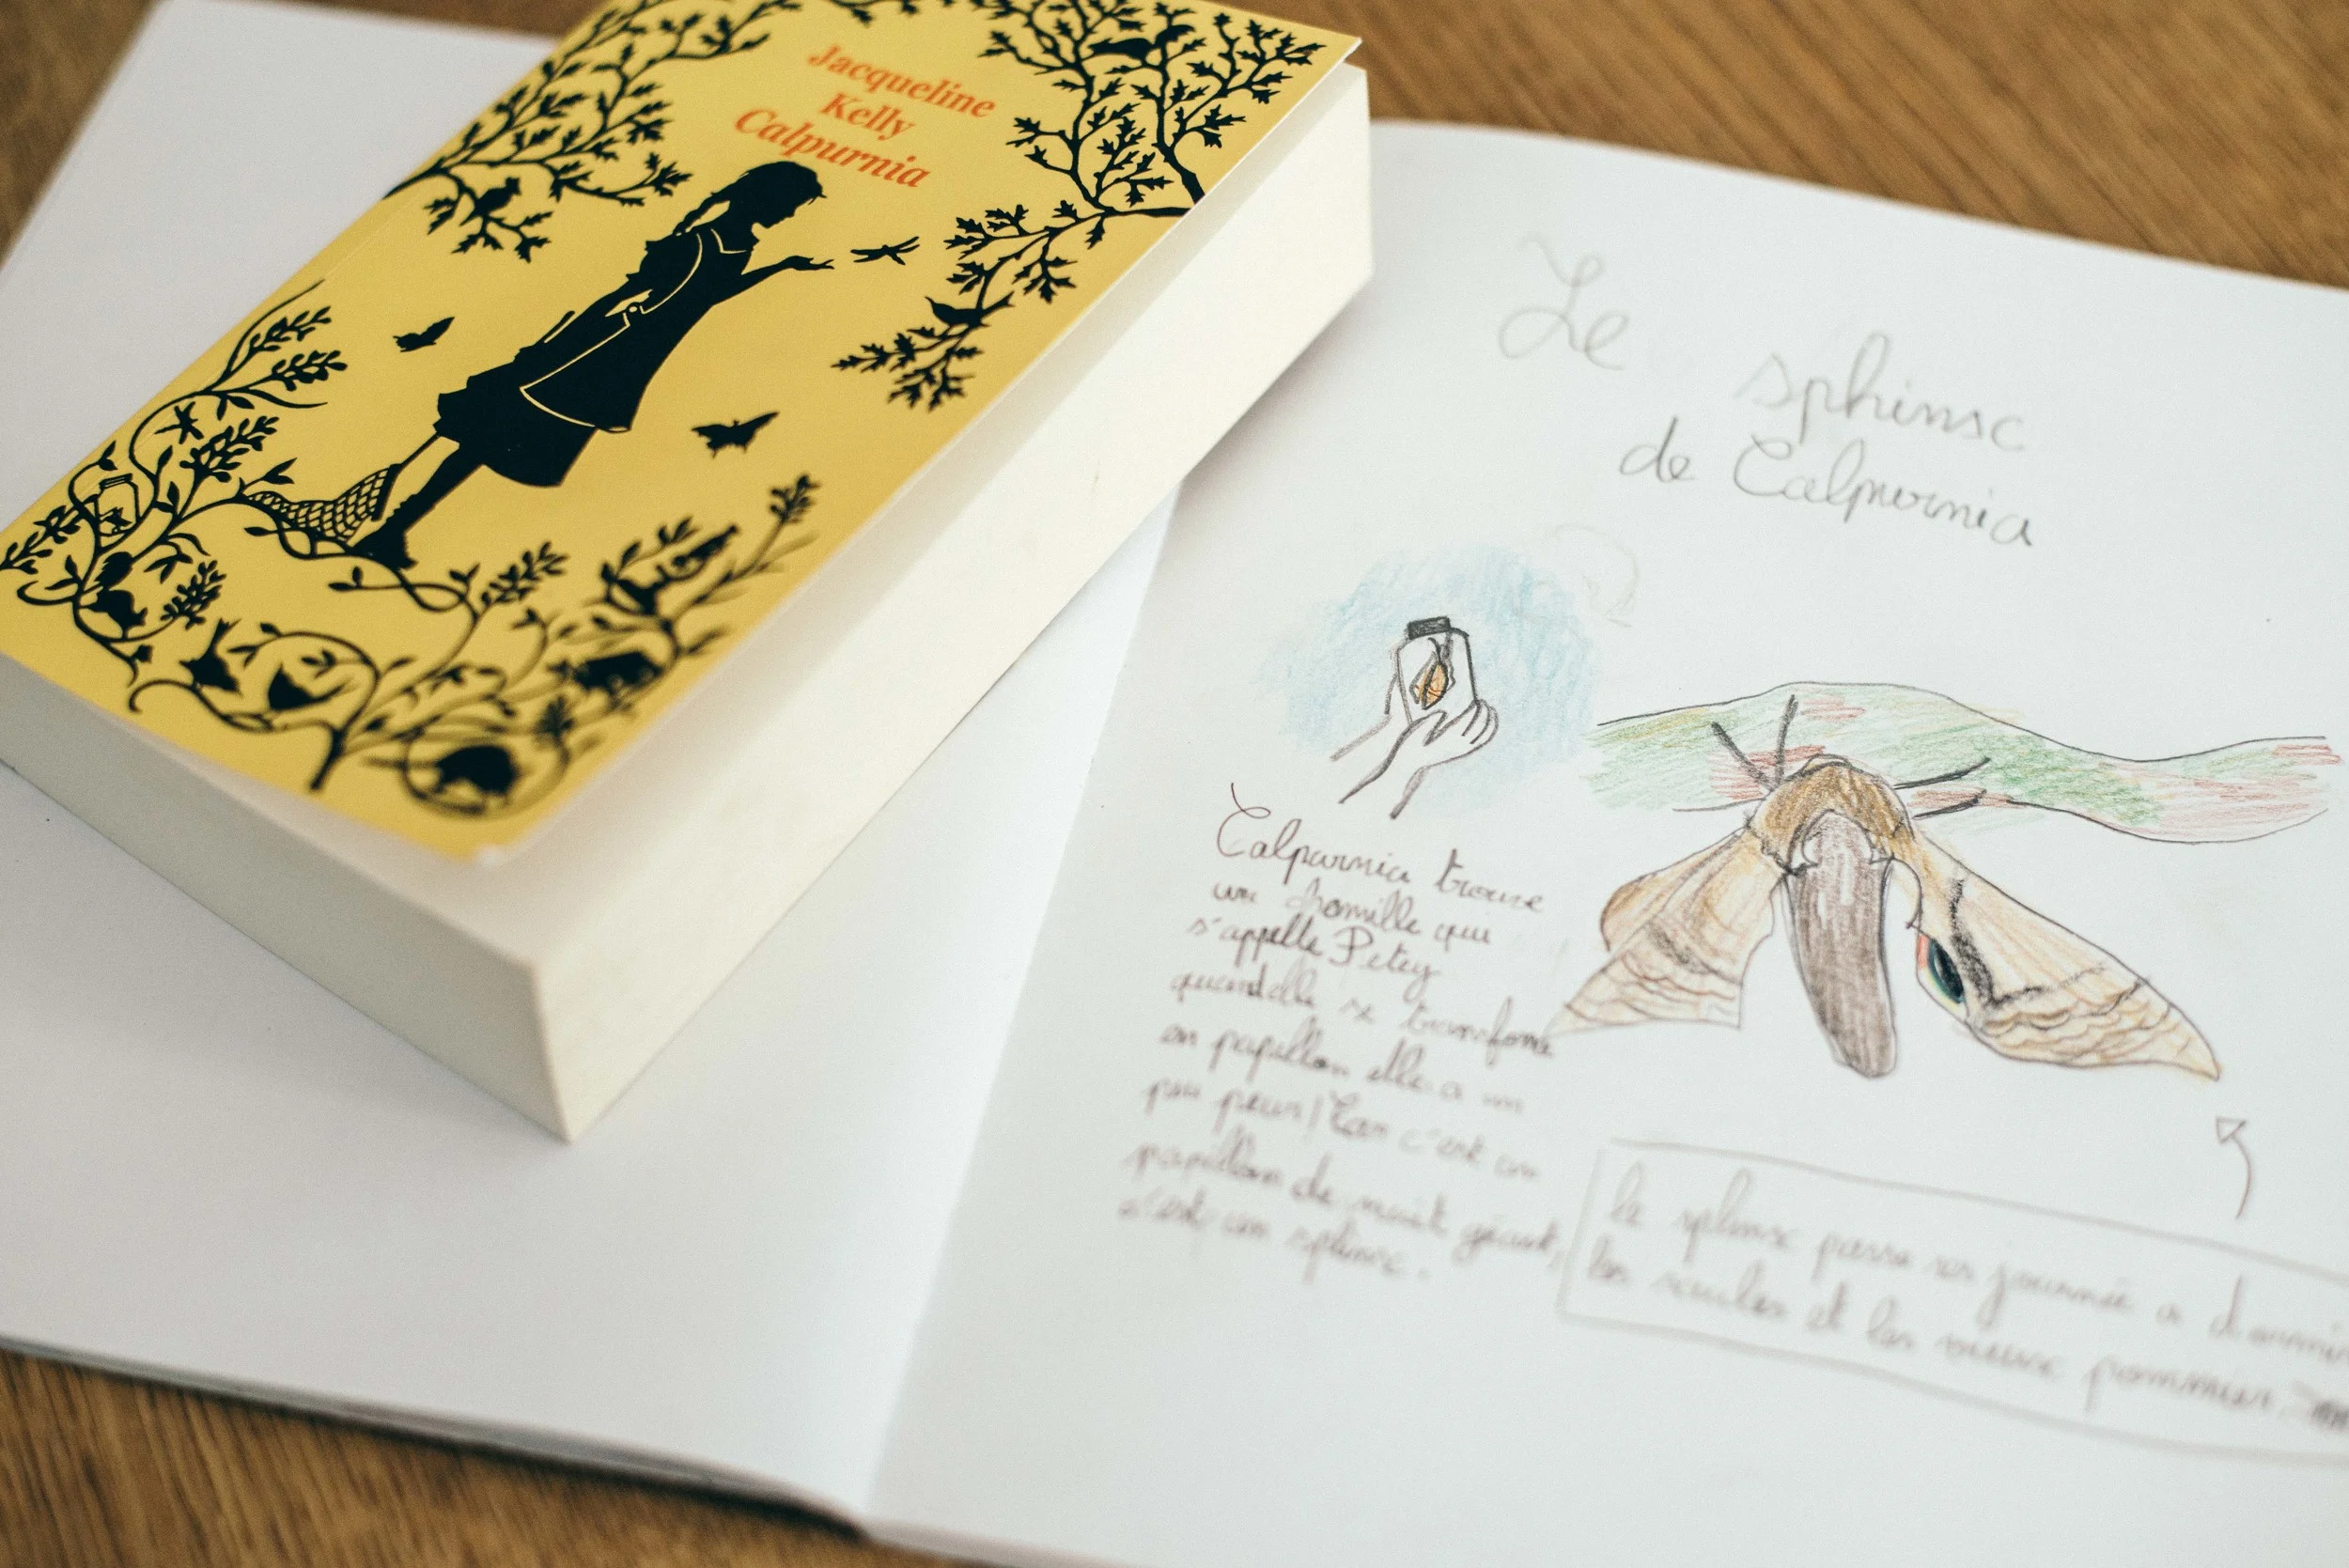 Jacqueline
Kelly
Calpurnia
Le sphinx
de Calpurnia
Calpurnia trouve
une chenille qui
s'appelle Petey
quand elle se transforme
en papillon elle a un
peu peur! Car c'est un
papillon de nuit géant,
c'est un sphinx.
le sphinx passe ses journée a dormir
les saules et les vieux pommier